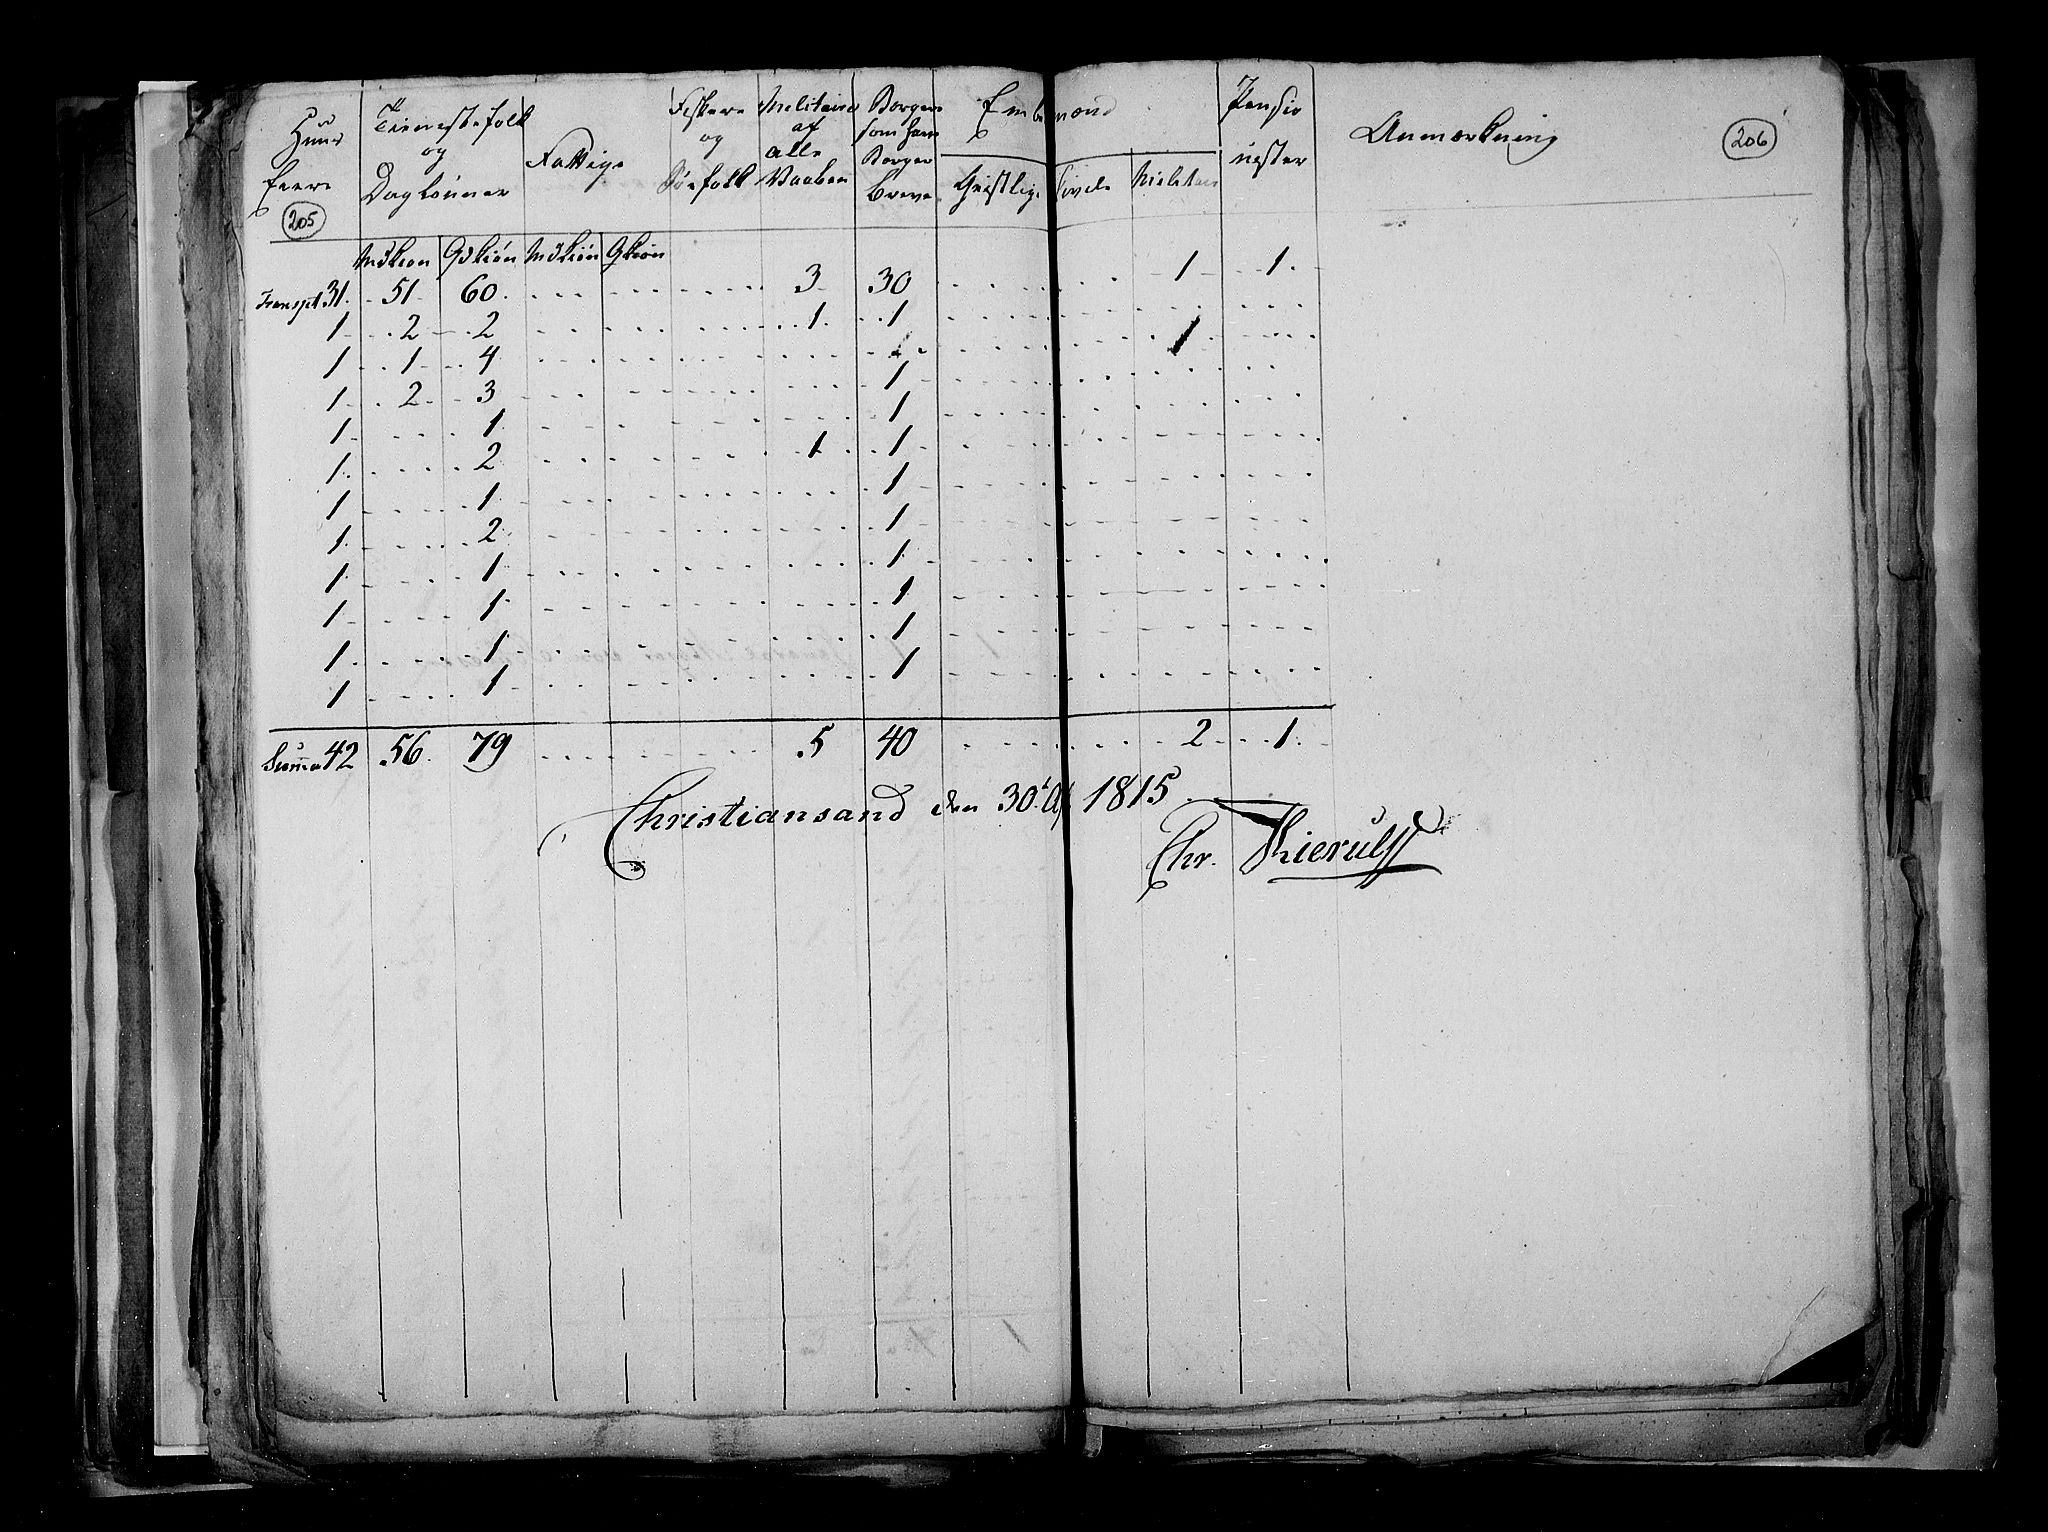 Huus Eiere | Tienestefolk og Daglønner | Fattige | Fiskere og Søefolk | Militaire af alle Vaaben | Borgere som have Borger Breve | Embedmænd | Pensionister | Anmærkning
205 | 206
Geistlige | Civile | Militair
Mdkiøn | Qdkiøn | Mdkiøn | Qkiøn
Transpt 31 | 51 | 60 | 3 | 30 | 1 | 1
1 | 2 | 2 | 1 | 1
1 | 1 | 4 | 1
1 | 2 | 3 | 1
1 | 1 | 1
1 | 2 | 1 | 1
1 | 1 | 1
1 | 2 | 1
1 | 1 | 1
1 | 1 | 1
1 | 1 | 1
1 | 1 | 1
Summa 42 | 56 | 79 | 5 | 40 | 2 | 1
Christiansand den 30t 1815
Chr. Kierulff